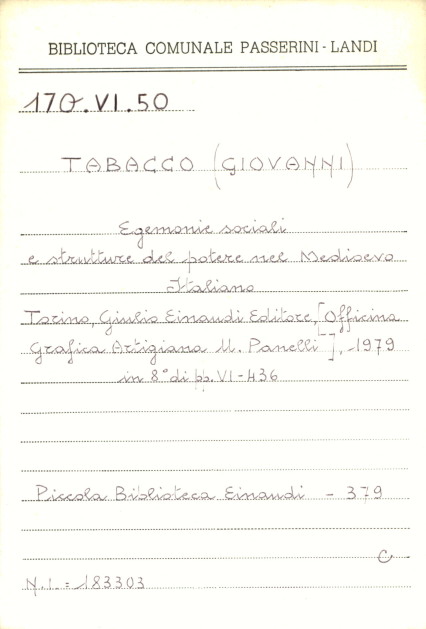 BIBLIOTECA COMUNALE PASSERINI - LANDI
170.VI.50
TABACCO (GIOVANNI)
Egemonie sociali
e strutture del potere nel Medioevo
Italiano
Torino, Giulio Einaudi Editore, [Officina
Grafica Artigiana U. Panelli], 1979
in 8° di pp. VI-436
Piccola Biblioteca Einaudi - 379
C
N.I. = 183303